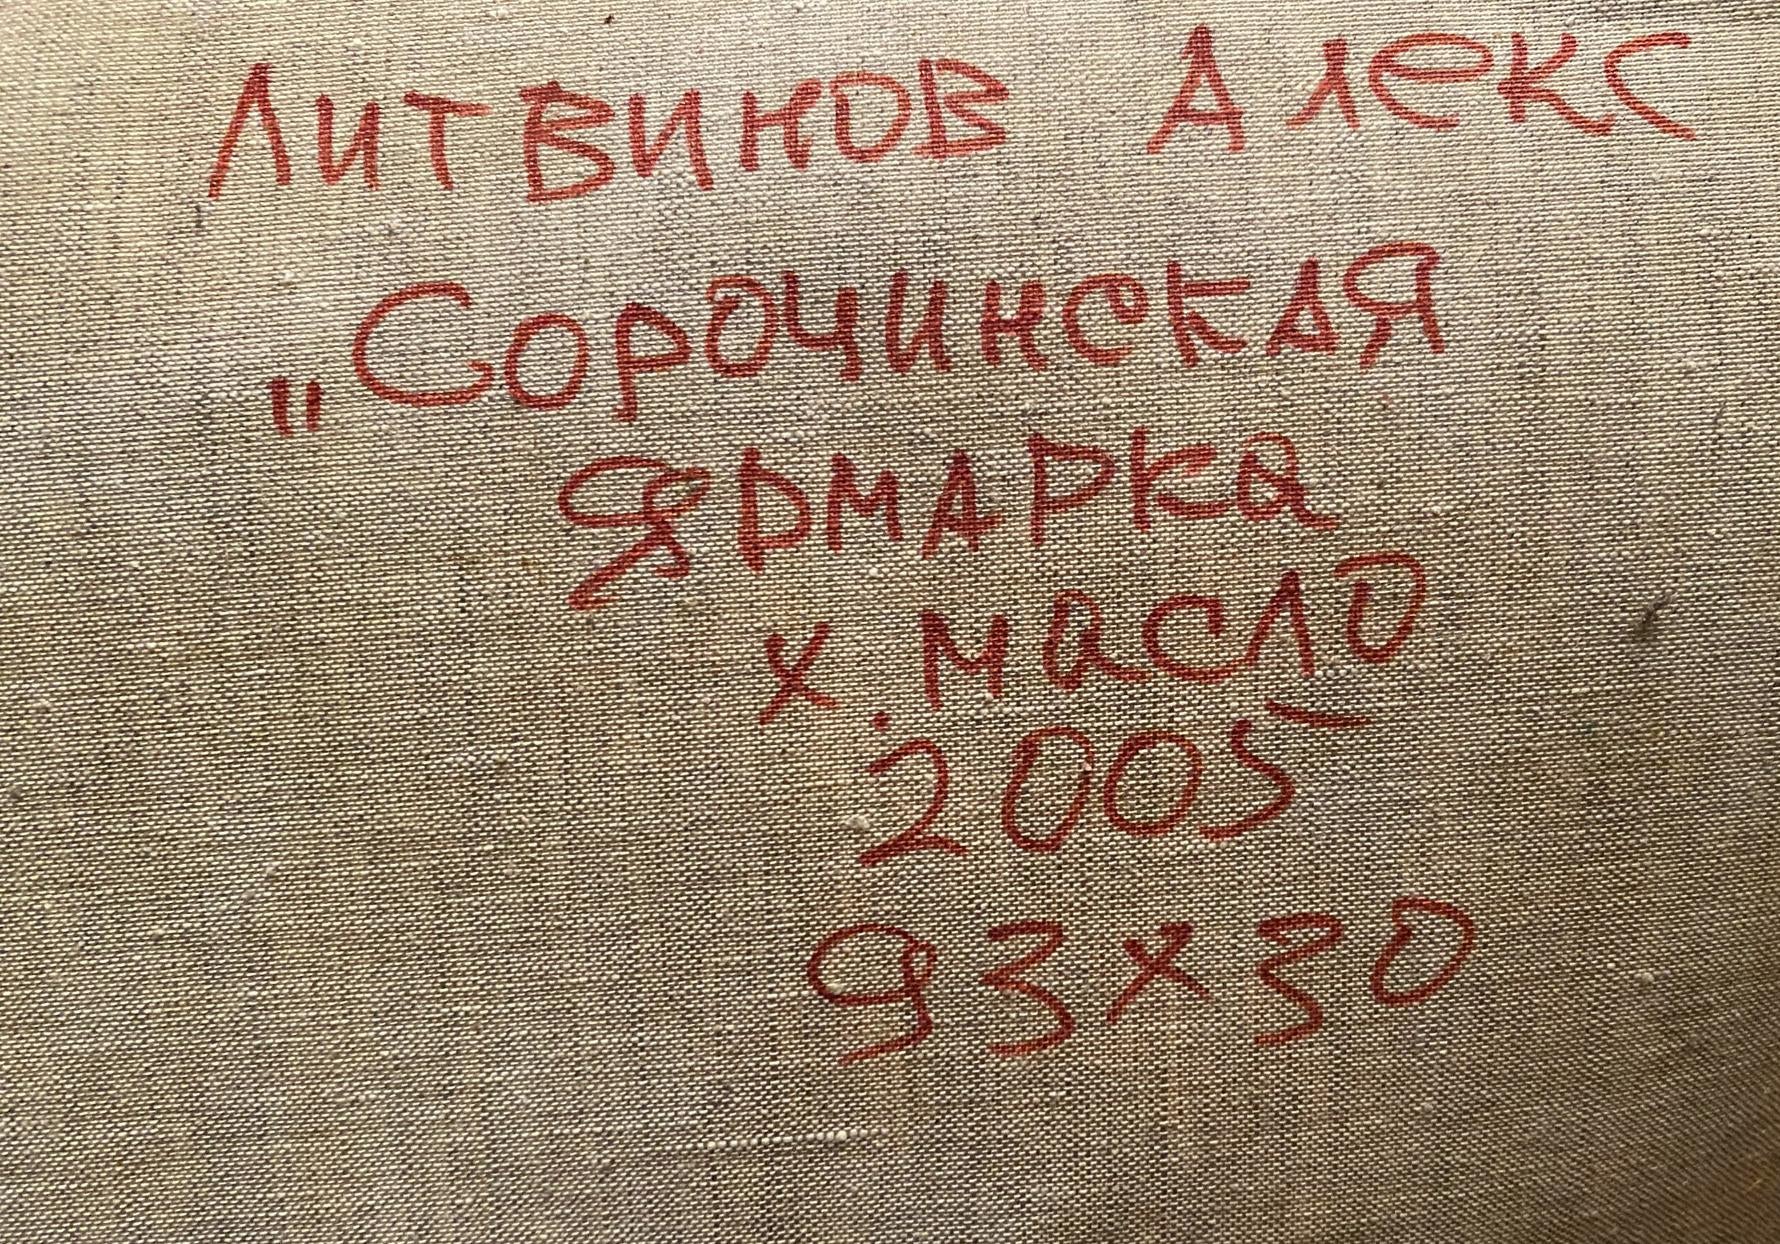 ЛИТВИНОВ АЛЕКС
„СОРОЧИНСКАЯ
ЯРМАРКА
х. МАСЛО
2005
93х30